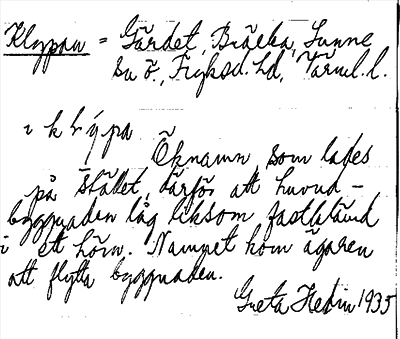 Klypan = Gärdet, Bräcka, Sunne
sn ö., Fryksd. hd, Värml. l.
i klýpa
Öknamn, som lades
på stället, därför att huvud-
byggnaden låg liksom fastklämd
i ett hörn. Namnet kom ägaren
att flytta byggnaden.
Greta Hedin 1935